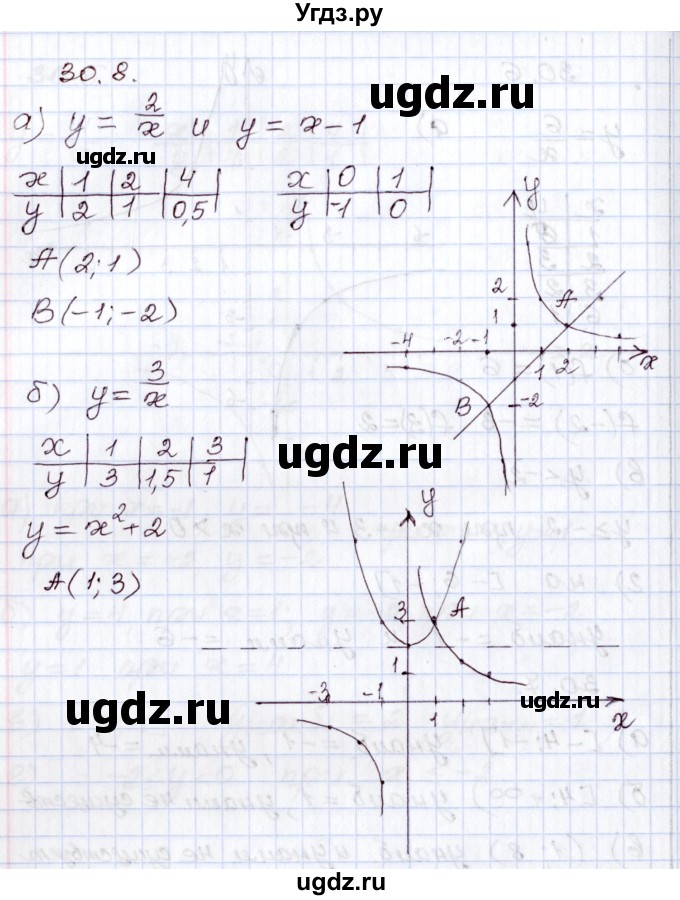 Угдз.ру
30.8.
ugdz.ru
а) y = 2/x и y = x - 1
ugdz.ru
x | 1 | 2 | 4 |
y | 2 | 1 | 0,5 |
x | 0 | 1 |
y | -1 | 0 |
A(2; 1)
B(-1; -2)
y
2
1
A
-4 -2 -1
1 2 x
B
-2
б) y = 3/x
ugdz.ru
x | 1 | 2 | 3 |
y | 3 | 1,5 | 1 |
y = x² + 2
A(1; 3)
y
3
A
1
-3 -1
1 x
ugdz.ru
ugdz.ru
ugdz.ru